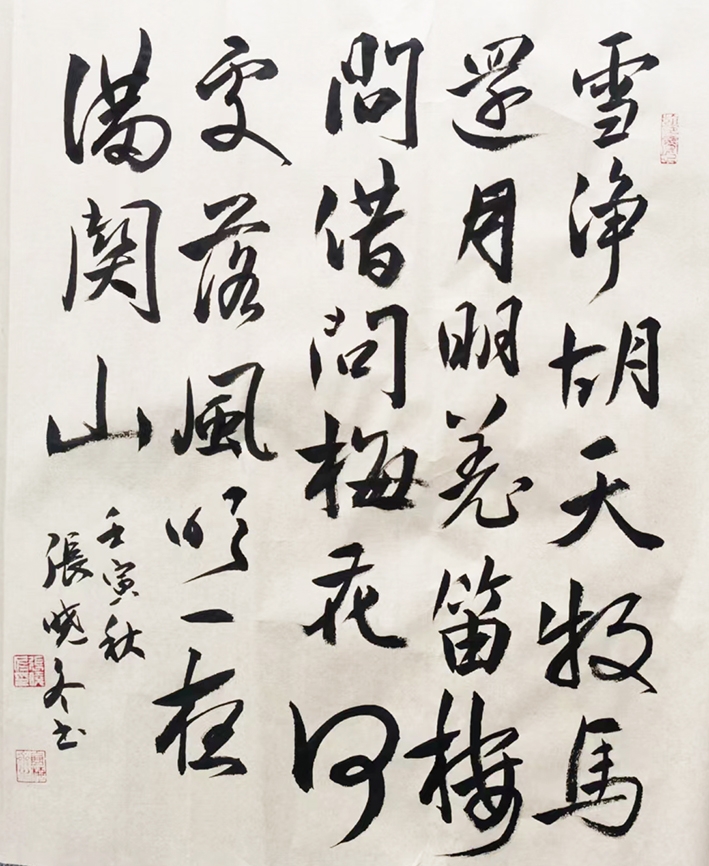 雪淨胡天牧馬
還月明羌笛樓
間借問梅花何
處落風吹一夜
滿關山
壬寅秋
張晓冬书